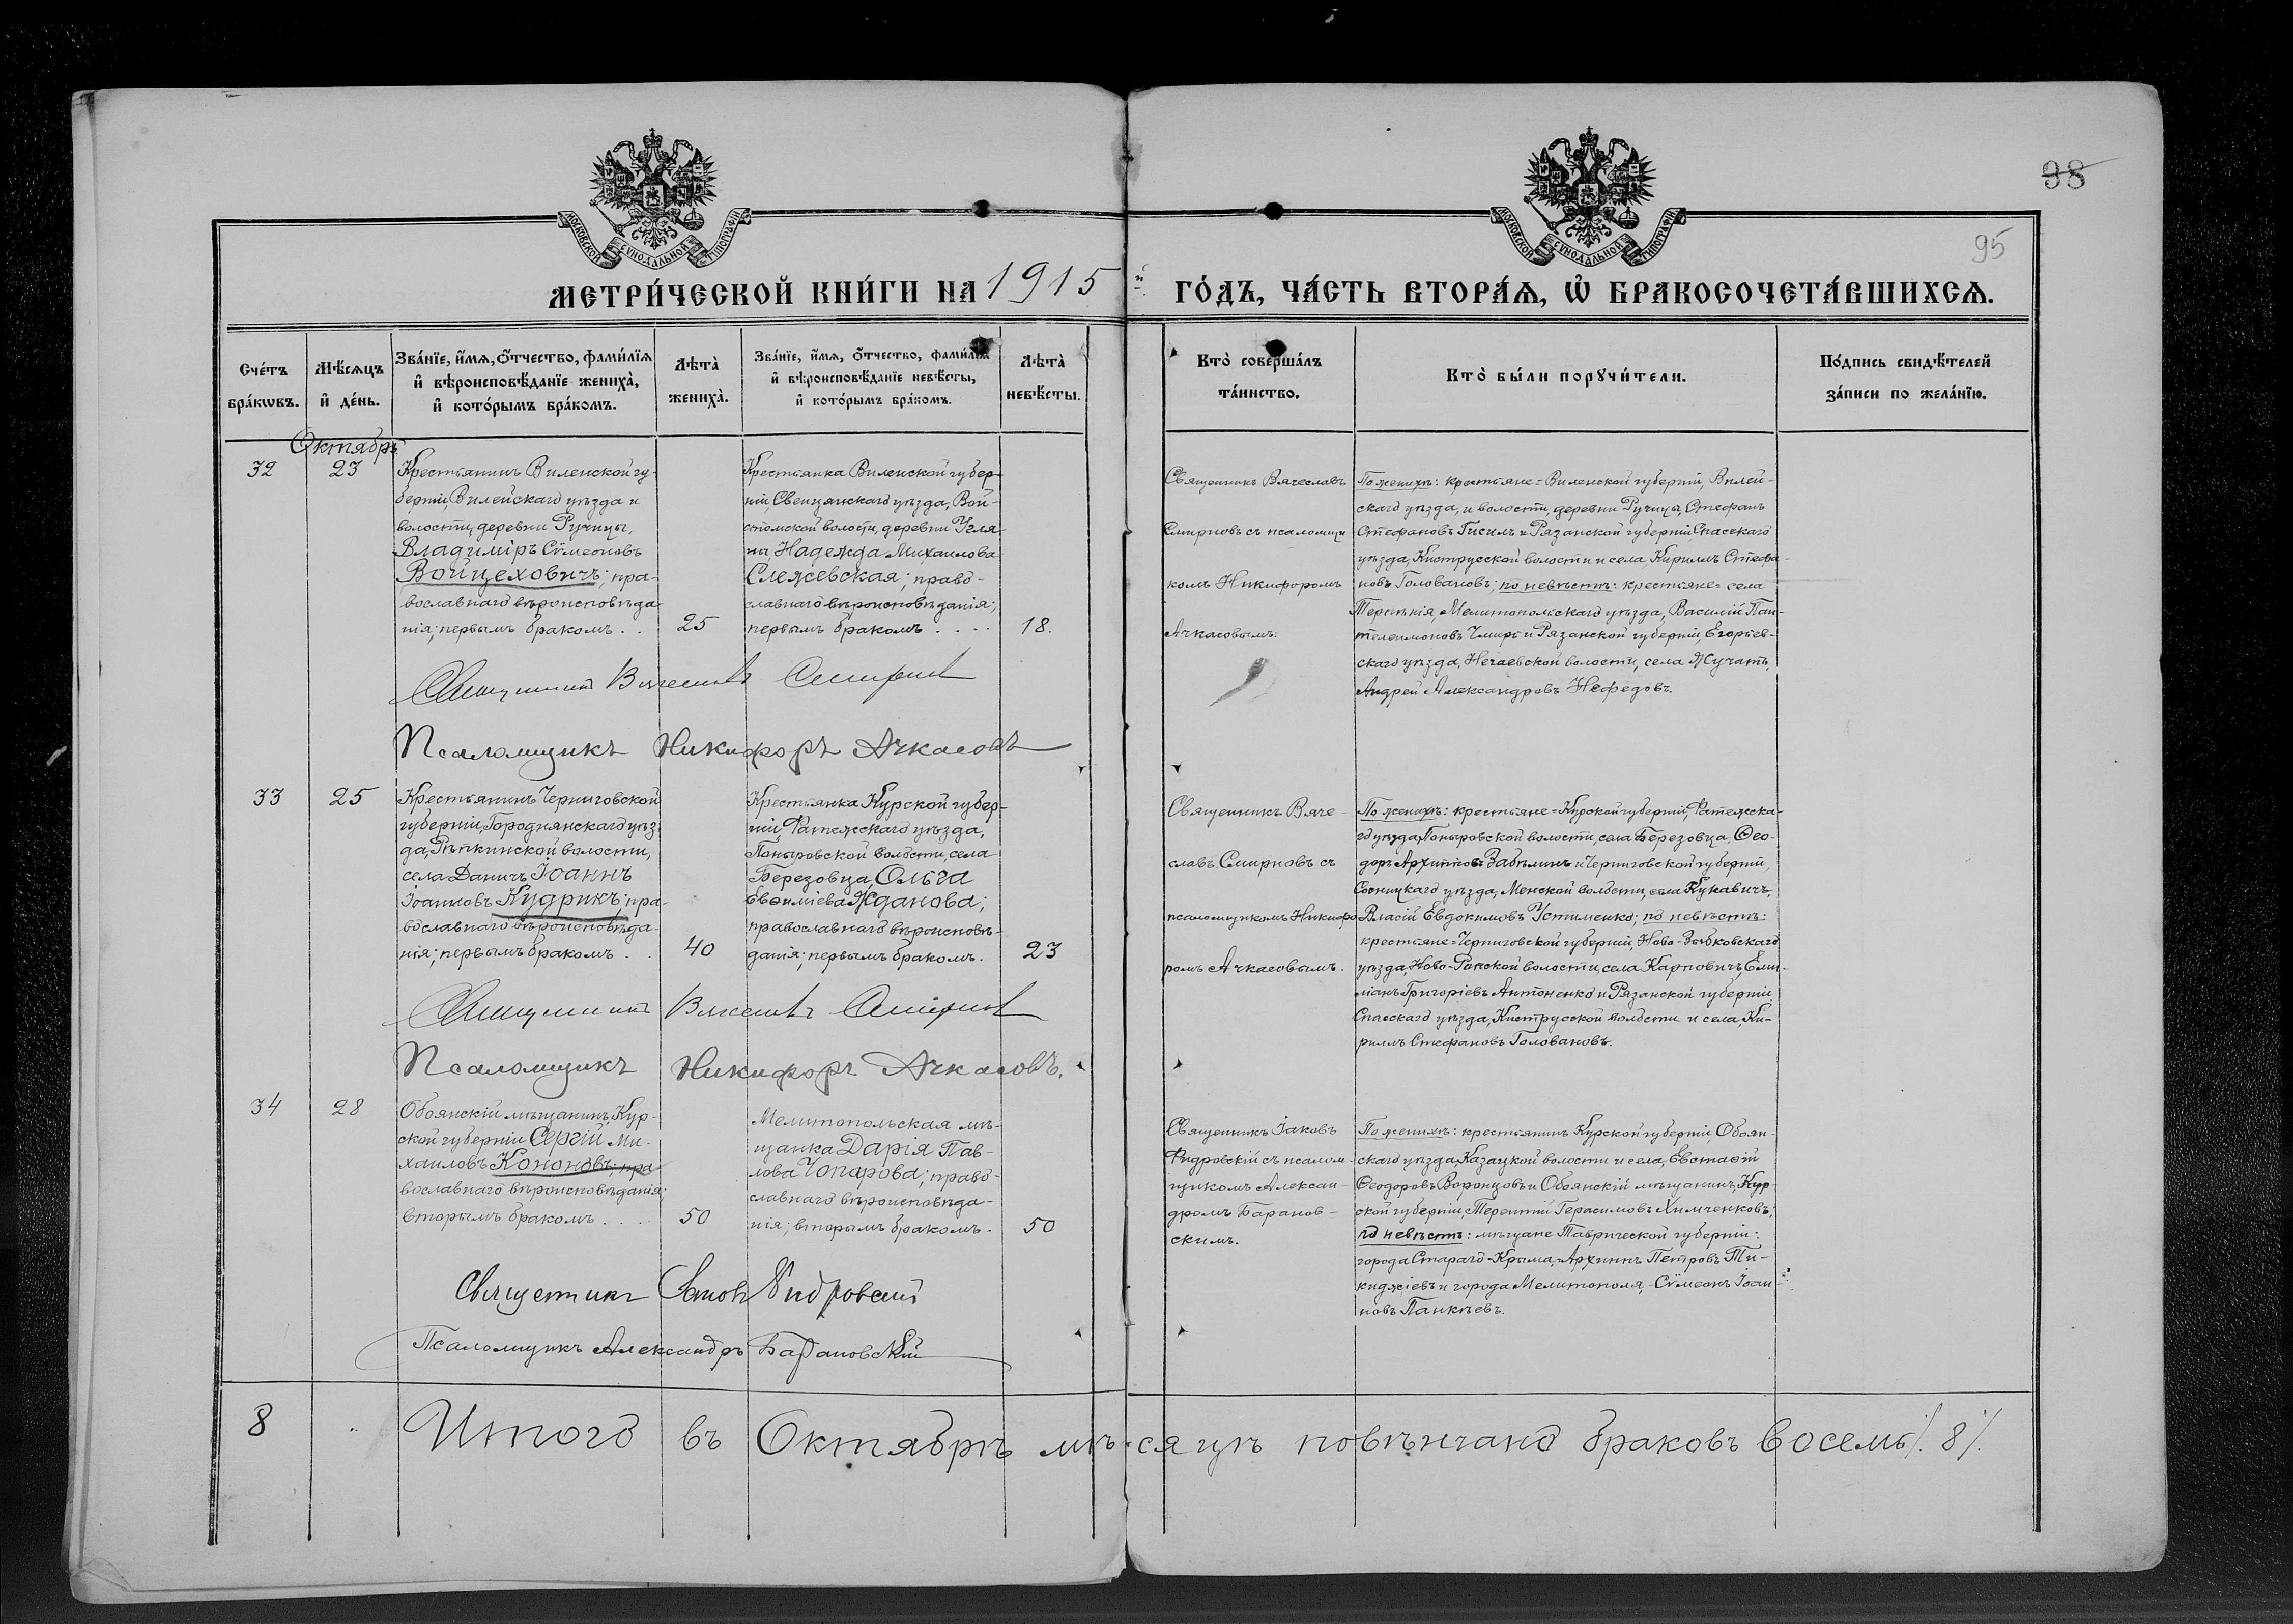 98
95
МОСКОВСКОЙ СѴНОДАЛЬНОЙ ТИПОГРАФІИ
МОСКОВСКОЙ СѴНОДАЛЬНОЙ ТИПОГРАФІИ
МЕТРИ́ЧЕСКОЙ КНИ́ГИ НА 1915 й ГО́ДЪ, ЧА́СТЬ ВТОРА́Ѧ, Ѿ БРАКОСОЧЕТА́ВШИХСѦ.
Сче́тъ бра́кѡвъ.
Мѣ́сѧцъ и҆ де́нь.
Зва́нїе, и҆́мѧ, ѻ҆́тчество, фами́лїѧ
и҆ вѣроисповѣ́данїе жениха̀,
и҆ кото́рымъ бра́комъ.
Лѣта̀ жениха̀.
Зва́нїе, и҆́мѧ, ѻ҆́тчество, фами́лїѧ
и҆ вѣроисповѣ́данїе невѣ́сты,
и҆ кото́рымъ бра́комъ.
Лѣта̀ невѣ́сты.
Кто̀ соверша́лъ
та́инство.
Кто̀ бы́ли порꙋчи́тели.
По́дпись свидѣ́телей
за́писи по жела́нїю.
Октябрь
32
23
Крестьянинъ Виленской гу-
берніи, Вилейскаго уѣзда и
волости, деревни Ручицы,
Владиміръ Сѵмеоновъ
Войцеховичъ; пра-
вославнаго вѣроисповѣда-
нія; первымъ бракомъ . .
25
Крестьянка Виленской губер-
ніи, Свенцянскаго уѣзда, Вой-
стомской волости, деревни Угля-
ны Надежда Михаилова
Слежевская; право-
славнаго вѣроисповѣданія;
первымъ бракомъ . . . .
18.
Священникъ Вячеславъ
Смирновъ съ псаломщи
комъ Никифоромъ
Ачкасовымъ.
По женихѣ: крестьяне= Виленской губерніи, Вилей-
скаго уѣзда, и волости, деревни Ручицы, Стефанъ
Стефановъ Гисичъ и Рязанской губерніи, Спасскаго
уѣзда, Киструсской волости и села, Кириллъ Стефа-
новъ Головановъ; по невѣстѣ: крестьяне= села
Терпѣнія, Мелитопольскаго уѣзда, Василій Пан-
телеимоновъ Чмиръ и Рязанской губерніи, Егорьев-
скаго уѣзда, Нечаевской волости, села Жучатъ,
Андрей Александровъ Нефедовъ.
Священникъ Вячеславъ Смирновъ
Псаломщикъ Никифоръ Ачкасовъ
33
25
Крестьянинъ Черниговской
губерніи, Городнянскаго уѣз
да, Рѣпкинской волости,
села Даничъ Іоаннъ
Іоанновъ Кудрикъ; пра-
вославнаго вѣроисповѣда-
нія; первымъ бракомъ . .
40
Крестьянка Курской губер-
ніи, Фатежскаго уѣзда,
Поныровской волости, села
Березовца, Ольга
Евѳиміева Жданова;
православнаго вѣроисповѣ-
данія; первымъ бракомъ.
23
Священникъ Вяче-
славъ Смирновъ съ
псаломщикомъ Никифо
ромъ Ачкасовымъ.
По женихѣ: крестьяне= Курской губерніи, Фатежска-
го уѣзда, Поныровской волости, села Березовца, Ѳео-
доръ Архиповъ Забѣлинъ и Черниговской губерніи,
Сосницкаго уѣзда, Менской волости, села Кукавичъ,
Власій Евдокимовъ Устименко; по невѣстѣ:
крестьяне= Черниговской губерніи, Ново-Зыбковскаго
уѣзда, Ново-Ропской волости, села Карповичъ, Емил-
ліанъ Григоріевъ Антоненко и Рязанской губерніи
Спасскаго уѣзда, Киструсской волости и села, Ки-
риллъ Стефановъ Головановъ.
Священникъ Вячеславъ Смирновъ
Псаломщикъ Никифоръ Ачкасовъ.
34
28
Обоянскій мѣщанинъ, Кур-
ской губерніи Сергій Ми-
хаиловъ Кононовъ; пра
вославнаго вѣроисповѣданія;
вторымъ бракомъ . . .
50
Мелитопольская мѣ-
щанка Дарія Пав-
лова Чопарова; право-
славнаго вѣроисповѣда-
нія; вторымъ бракомъ.
50
Священникъ Іаковъ
Фидровскій съ псалом-
щикомъ Алексан-
дромъ Баранов-
скимъ.
По женихѣ: крестьянинъ Курской губерніи, Обоян-
скаго уѣзда, Казацкой волости и села, Евстаѳій
Ѳеодоровъ Воронцовъ и Обоянскій мѣщанинъ, Кур-
ской губерніи, Терентій Герасимовъ Химченковъ;
по невѣстѣ: мѣщане Таврической губерніи:
города Стараго-Крыма, Архиппъ Петровъ Ти-
киджіевъ и города Мелитополя, Сѵмеонъ Іоан-
новъ Панкѣевъ.
Священникъ Іаковъ Фидровскій
Псаломщикъ Александръ Барановскій
8
Итого въ Октябрѣ мѣсяцѣ повѣнчано браковъ восемь /. 8 /.